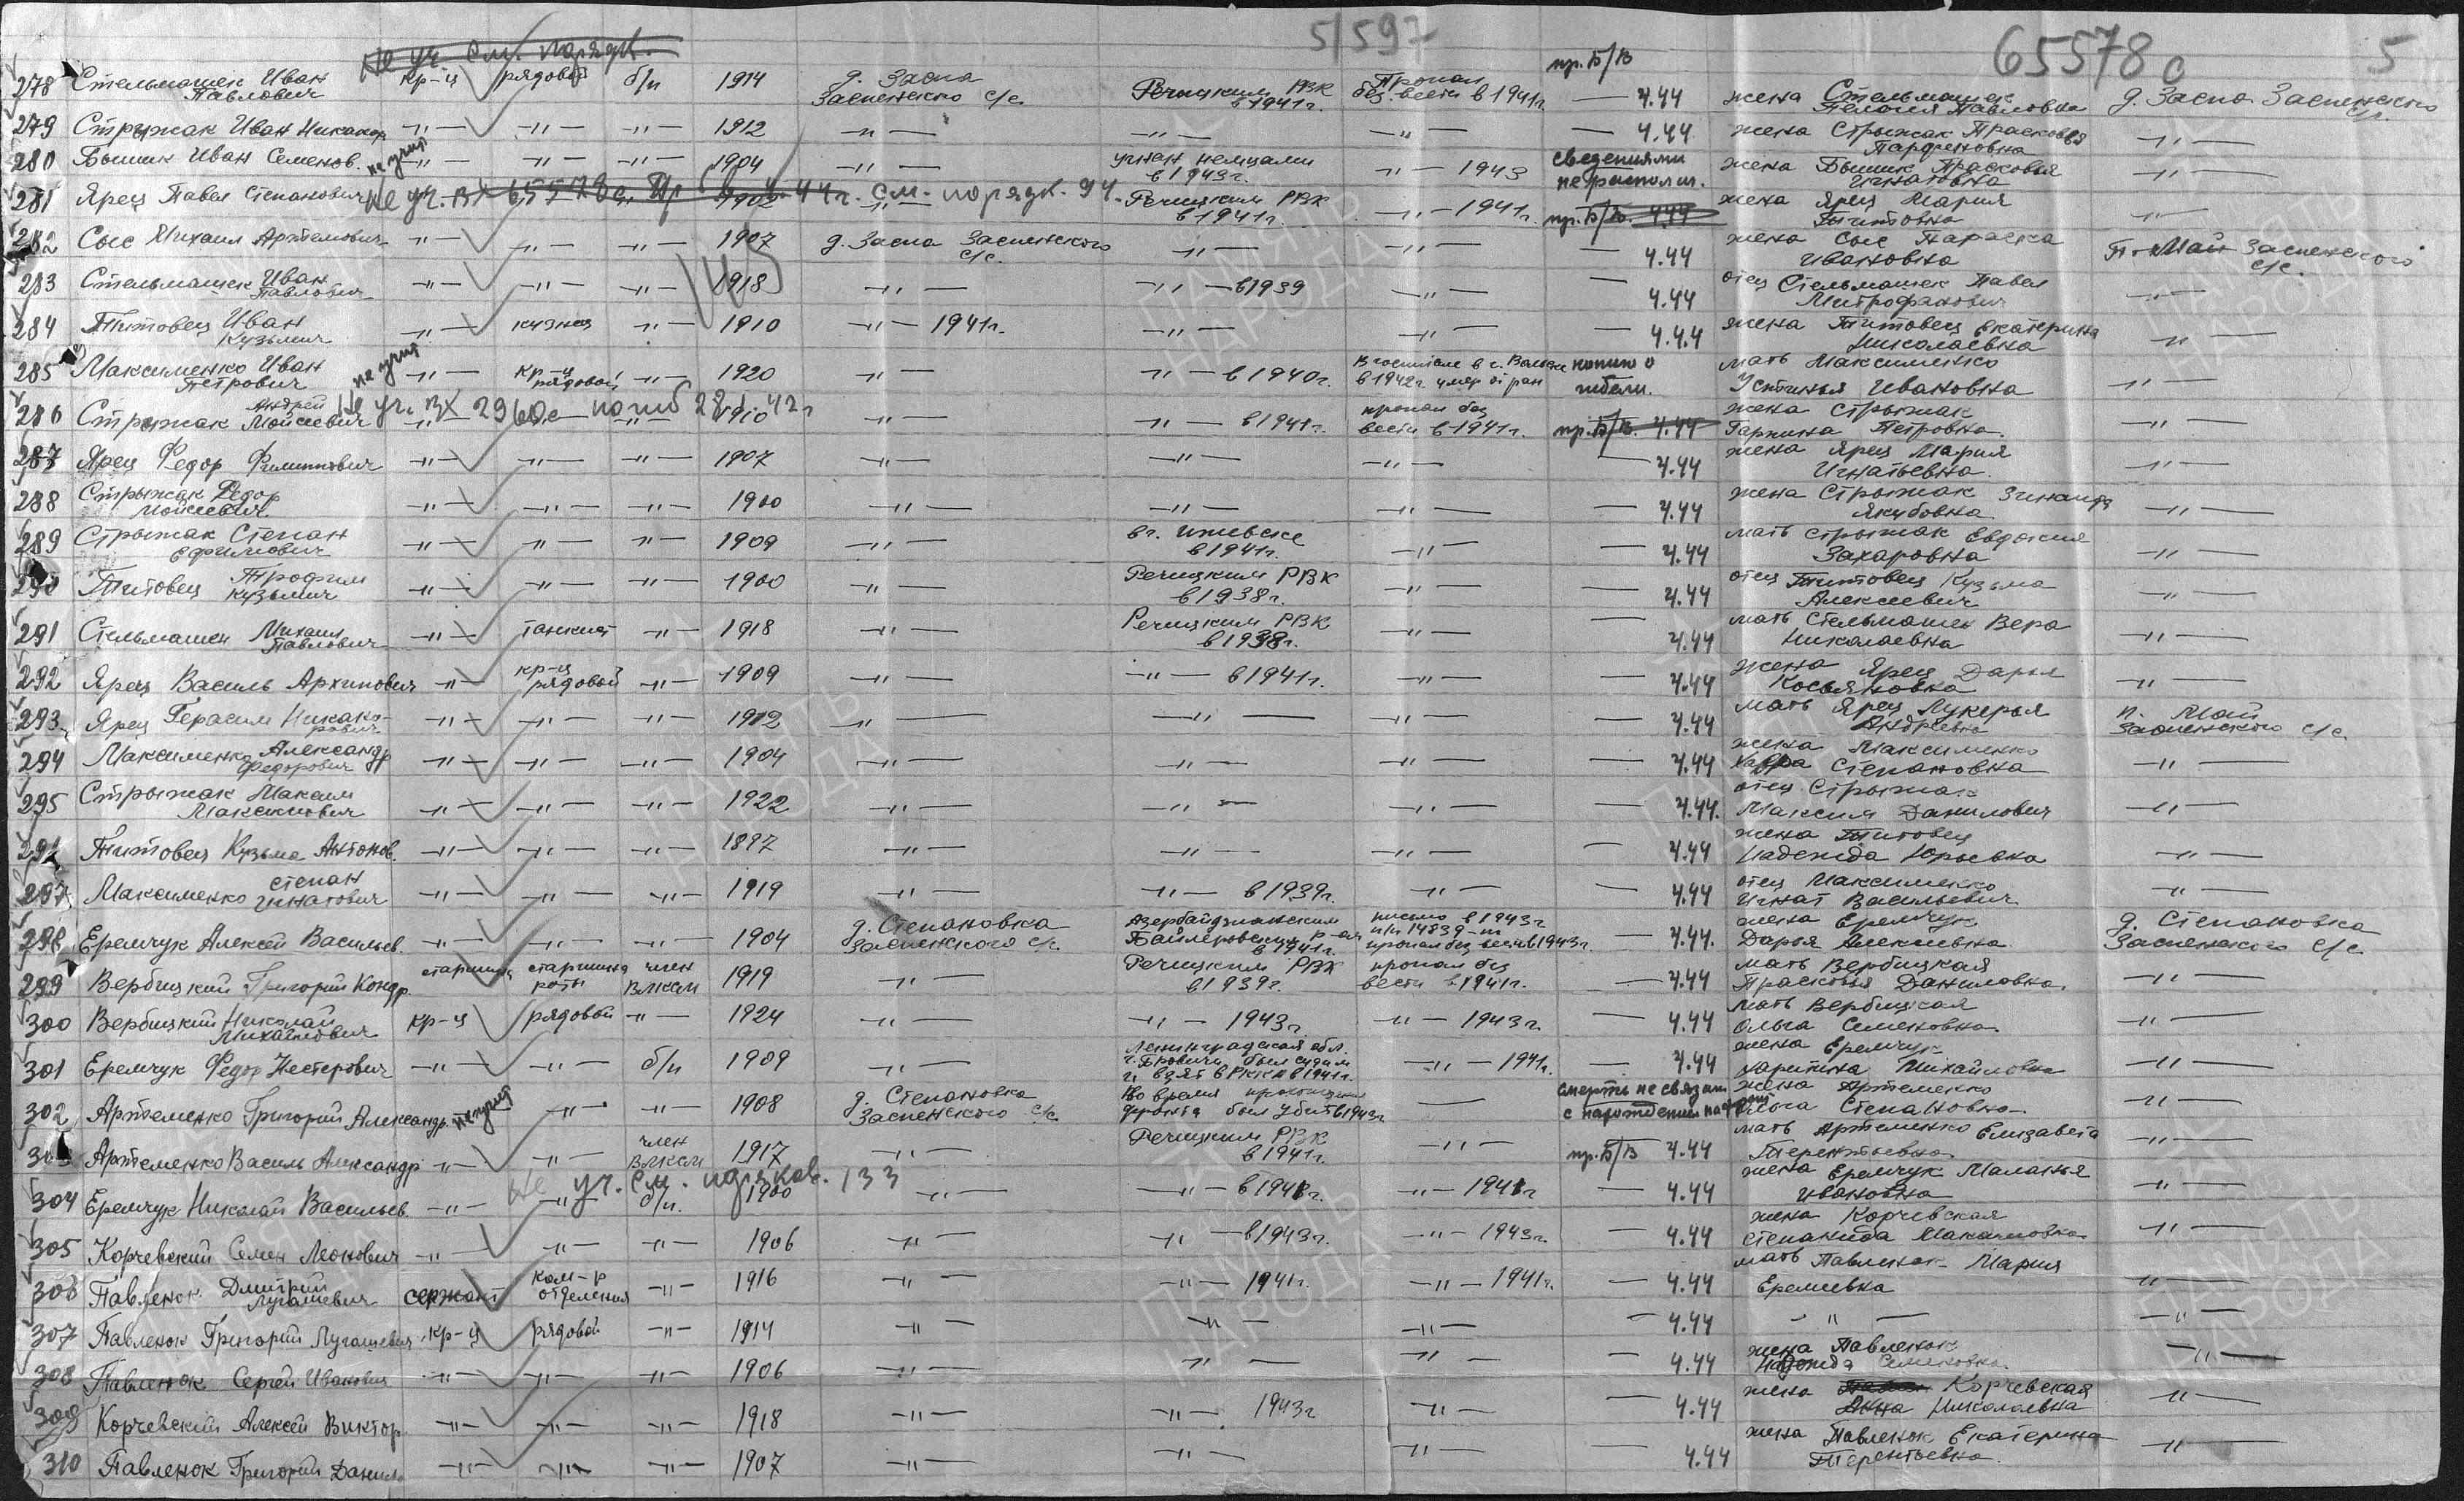 51597
65578с
5
не уч. см. порядк.
пр. Б/В
278 Стельмашек Иван Павлович кр-ц рядовой б/п 1914 д. Заспа Заспенского с/с. Речицким РВК в 1941г. Пропал без вести в 1941г. — 4.44 жена Стельмашек Пелагия Павловна д. Заспа Заспенского с/с.
279 Стрыжак Иван Никанор. —"— —"— —"— 1912 —"— —"— —"— — 4.44 жена Стрыжак Прасковья Парфеновна —"—
280 Бышик Иван Семенов. не учит —"— —"— —"— 1904 —"— угнан немцами в 1943г. —"— 1943 сведениями не располаг. жена Бышик Прасковья Игнатовна —"—
281 Ярец Павел Степанович не уч. вх 65578с см. порядк. 94. 1902 —"— Речицким РВК в 1941г. —"— 1941г. пр. Б/В. 4.44 жена Ярец Мария Титовна —"—
282 Сыс Михаил Артемович —"— —"— —"— 1907 д. Заспа Заспенского с/с. —"— —"— 4.44 жена Сыс Параска Ивановна П. Май Заспенского с/с.
283 Стельмашек Иван Павлович —"— —"— —"— 1918 —"— —"— в 1939 —"— — 4.44 отец Стельмашек Павел Митрофанович —"—
284 Титовец Иван Кузьмич —"— кузнец —"— 1910 —"— 1941г. —"— —"— — 4.44 жена Титовец Екатерина Николаевна —"—
285 Максименко Иван Петрович не учит —"— кр-ц рядовой —"— 1920 —"— —"— в 1940г. в госпитале в г. в 1942г. умер от ран копию о гибели. мать Максименко Устинья Ивановна —"—
286 Стрыжак Андрей Мойсеевич не уч. вх 2960с погиб 28.1.42г —"— —"— 1910 —"— —"— в 1941г. пропал без вести в 1941г. пр. Б/В. 4.44 жена Стрыжак Гарпина Петровна. —"—
287 Ярец Федор Филиппович —"— —"— —"— 1907 —"— —"— —"— — 4.44 жена Ярец Мария Игнатьевна —"—
288 Стрыжак Федор Мойсеевич —"— —"— —"— 1900 —"— —"— —"— — 4.44 жена Стрыжак Зинаида Якубовна —"—
289 Стрыжак Степан Ефимович —"— —"— —"— 1909 —"— в г. Ижевске в 1941г. —"— — 4.44 мать Стрыжак Евдокия Захаровна —"—
290 Титовец Трофим Кузьмич —"— —"— —"— 1900 —"— Речицким РВК в 1938г. —"— — 4.44 отец Титовец Кузьма Алексеевич —"—
291 Стельмашек Михаил Павлович —"— танкист —"— 1918 —"— Речицким РВК в 1938г. —"— 4.44 мать Стельмашек Вера Николаевна —"—
292 Ярец Василь Архипович —"— кр-ц рядовой —"— 1909 —"— —"— в 1941г. —"— — 4.44 жена Ярец Дарья Косьяновна —"—
293 Ярец Герасим Никанорович —"— —"— —"— 1912 —"— —"— —"— — 4.44 мать Ярец Лукерья Андреевна п. Май Заспенского с/с.
294 Максименко Александр Федорович —"— —"— —"— 1904 —"— —"— —"— — 4.44 жена Максименко Степановна —"—
295 Стрыжак Максим Максимович —"— —"— —"— 1922 —"— —"— —"— — 4.44. отец Стрыжак Максим Данилович —"—
296 Титовец Кузьма Антонов. —"— —"— —"— 1897 —"— —"— —"— — 4.44 жена Титовец Надежда Юрьевна —"—
297 Максименко Степан Игнатович —"— —"— —"— 1919 —"— —"— в 1939г. —"— — 4.44 отец Максименко Игнат Васильевич —"—
298 Еремчук Алексей Васильев. —"— —"— —"— 1904 д. Степановка Заспенского с/с. Азербайджанским р-ом в 1941г. письмо в 1943г п/п 14839-т пропал без вести в 1943г. — 4.44. жена Еремчук Дарья Алексеевна д. Степановка Заспенского с/с
299 Вербицкий Григорий Кондр. старшина старшина роты член ВЛКСМ 1919 —"— Речицким РВК в 1939г. пропал без вести в 1941г. — 4.44 мать Вербицкая Прасковья Даниловна. —"—
300 Вербицкий Николай Михайлович кр-ц рядовой —"— 1924 —"— —"— 1943г. —"— 1943г. — 4.44 мать Вербицкая Ольга Семеновна —"—
301 Еремчук Федор Нестерович —"— —"— б/п 1909 —"— Ленинградская обл. г. Боровичи был судим и взят в РККА в 1941г. —"— 1941г. — 4.44 жена Еремчук Михайловна —"—
302 Артеменко Григорий Александр. не учит —"— —"— 1908 д. Степановка Заспенского с/с во время прохождения фронта был убит в 1943г — смерть не связан с нахождением на фронт жена Артеменко Ольга Степановна —"—
303 Артеменко Василь Александр —"— —"— член ВЛКСМ 1917 —"— Речицким РВК в 1941г. —"— пр. Б/В 4.44 мать Артеменко Елизавета Терентьевна —"—
304 Еремчук Николай Васильев. не уч. см. порядков. 133 —"— —"— б/п. 1900 —"— —"— в 1941г. —"— 1941г — 4.44 жена Еремчук Маланья Ивановна —"—
305 Корчевский Семен Леонович —"— —"— —"— 1906 —"— —"— в 1943г. —"— 1943г. — 4.44 жена Корчевская Степанида Макаровна —"—
306 Павленок Дмитрий Лукашевич сержант ком-р отделения —"— 1916 —"— —"— 1941г. —"— 1941г. — 4.44 мать Павленок Мария Еремеевна —"—
307 Павленок Григорий Лукашевич кр-ц рядовой —"— 1914 —"— —"— —"— — 4.44 —"— —"—
308 Павленок Сергей Иванович —"— —"— —"— 1906 —"— —"— —"— — 4.44 жена Павленок Надежда Семеновна. —"—
309 Корчевский Алексей Виктор. —"— —"— —"— 1918 —"— —"— 1943г —"— — 4.44 жена Корчевская Анна Николаевна —"—
310 Павленок Григорий Данил. —"— —"— —"— 1907 —"— —"— —"— — 4.44 жена Павленок Екатерина Терентьевна. —"—